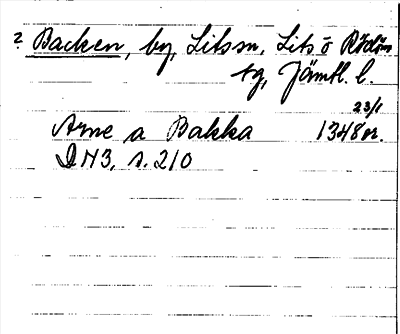 ? Backen, by, Litssn, Lits o Rödöns
tg, Jämtl. l.
23/1
Arne a Bakka 1348 or.
DN3, s. 210